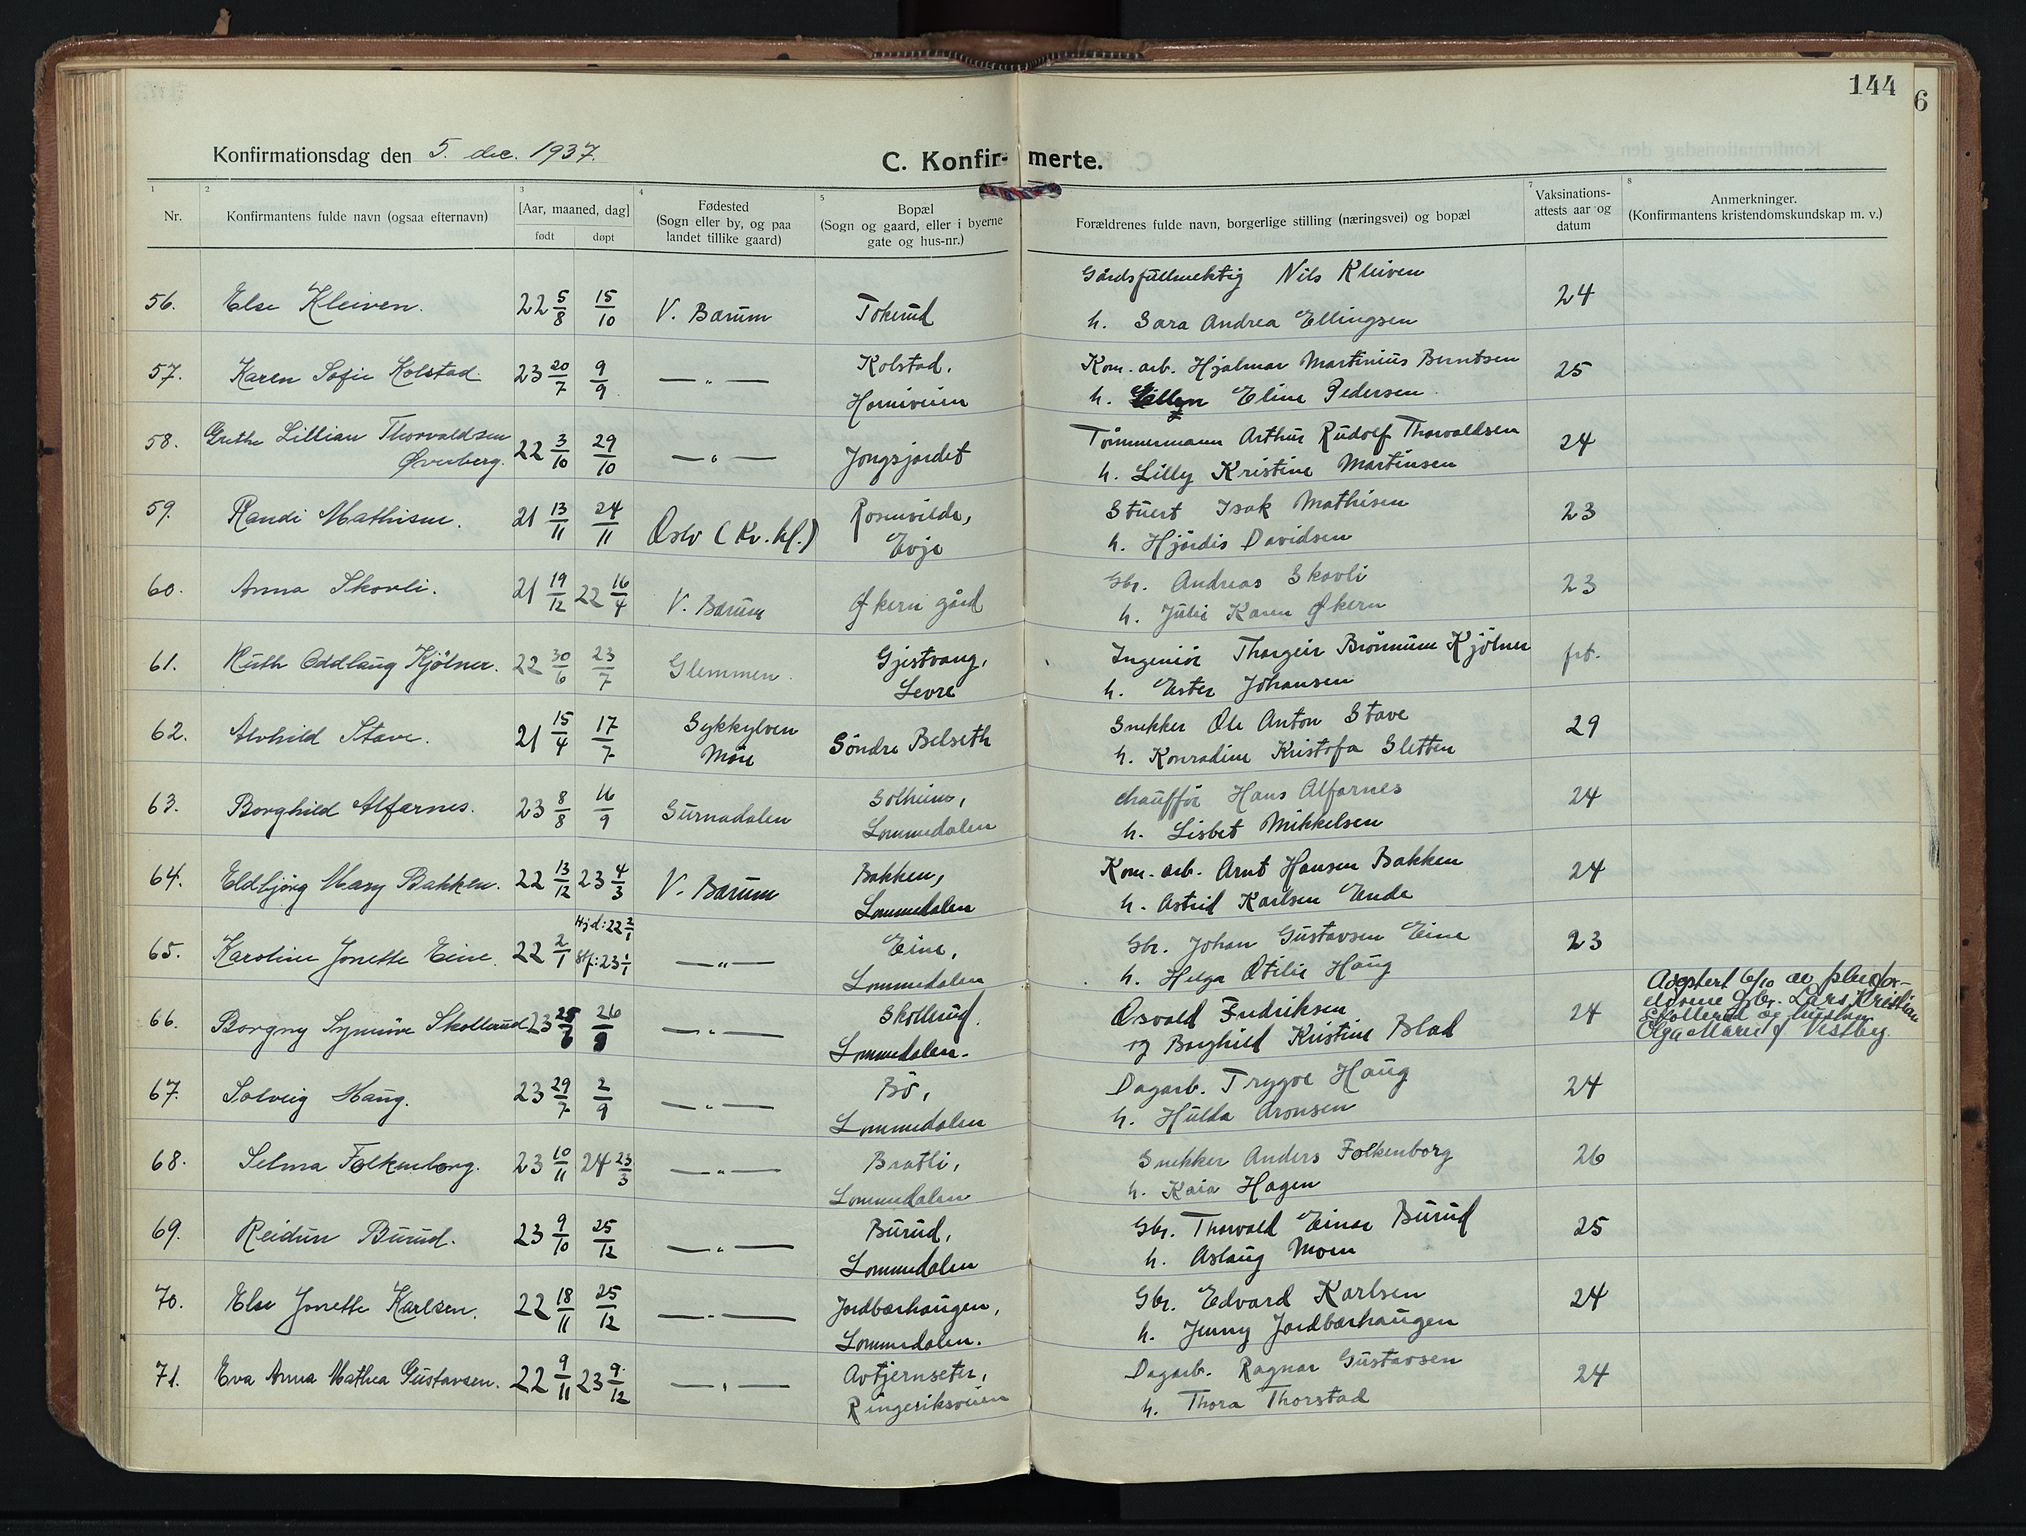 144
6
Konfirmationsdag den 5. dec. 1937.
C. Konfir- merte.
1 2 3 4 5 7 8
Nr.
Konfirmantens fulde navn (ogsaa efternavn)
[Aar, maaned, dag]
født døpt
Fødested
(Sogn eller by, og paa
landet tillike gaard)
Bopæl
(Sogn og gaard, eller i byerne
gate og hus-nr.)
Forældrenes fulde navn, borgerlige stilling (næringsvei) og bopæl
Vaksinations-
attests aar og
datum
Anmerkninger.
(Konfirmantens kristendomskundskap m. v.)
56. Else Kleiven. 22 5/8 15/10 V. Bærum Tokerud Gårdsfullmektig Nils Kleiven 24
h. Sara Andrea Ellingsen
57. Karen Sofie Kolstad. 23 20/7 9/9 —„— Kolstad, Kom. arb. Hjalmar Martinius Berntsen 25
Horniveien h. Eline Pedersen.
58. Grethe Lillian Thorvaldsen 22 3/10 29/10 —„— Jongsjordet Tømmermann Arthur Rudolf Thorvaldsen 24
Øverberg. h. Lilly Kristine Martinsen
59. Randi Mathisen. 21 13/11 24/11 Oslo (Kv. kl.) Rosenvilde, Stuert Isak Mathisen 23
Evje h. Hjördis Davidsen
60. Anna Skovli. 21 19/12 22 16/4 V. Bærum Økern gård Gbr. Andreas Skovli 23
h. Julie Karen Økern
61. Ruth Oddlaug Kjölner. 22 30/6 23/7 Glemmen. Gjestvang, Ingeniør Thorgeir Brönnum Kjölner frt.
Levre h. Ester Johansen
62. Alvhild Stave. 21 15/4 17/7 Sykkylven Søndre Belseth Snekker Ole Anton Stave 29
Møre h. Konradine Kristofa Sletten
63. Borghild Alfarnes. 23 8/8 16/9 Surnadalen Solheim, chauffør Hans Alfarnes 24
Lommedalen h. Lisbet Mikkelsen
64. Eldbjörg Mary Bakken. 22 13/12 23 4/3 V. Bærum Bakken, Kom. arb. Arnt Hansen Bakken 24
Lommedalen h. Astrid Karlsen Ende
65. Karoline Jonette Eine. 22 2/1 Hjd: 22 2/1 —„— Eine, Gbr. Johan Gustavsen Eine 23
Stf: 23 1/1 Lommedalen h. Helga Otilie Haug
66. Borgny Synnöve Skollerud 23 26 —„— Skollerud. Osvald Fredriksen 24
Lommedalen. og Borghild Kristine Blad
Adoptert 6/10 av pleiefor-
eldrene Gbr. Lars Kristian
Skollerud og hustru
Olga Marie f Vestby.
67. Solveig Haug. 23 29/7 2/9 —„— Bö, Dagarb. Trygve Haug 24
Lommedalen h. Hulda Aronsen
68. Selma Folkenborg. 23 10/11 24 23/3 —„— Bratli, Snekker Anders Folkenborg 26
Lommedalen h. Kaia Hagen
69. Reidun Burud. 23 9/10 25/12 —„— Burud, Gbr. Thorvald Einar Burud 25
Lommedalen h. Aslaug Moen
70. Else Jonette Karlsen. 22 18/11 25/12 —„— Jordbærhaugen, Gbr. Edvard Karlsen 24
Lommedalen. h. Jenny Jordbærhaugen
71. Eva Anna Mathea Gustavsen. 22 9/11 23 9/12 —„— Avtjernseter, Dagarb. Ragnar Gustavsen 24
Ringeriksveien h. Thora Thorstad